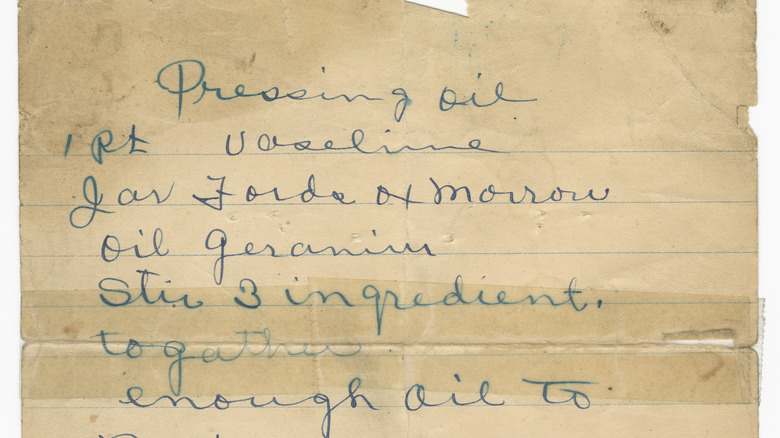 Pressing oil
1 Pt Vaseline
Jar Fords ox Morrow
oil Geranium
Stir 3 ingredient.
togather
enough oil to